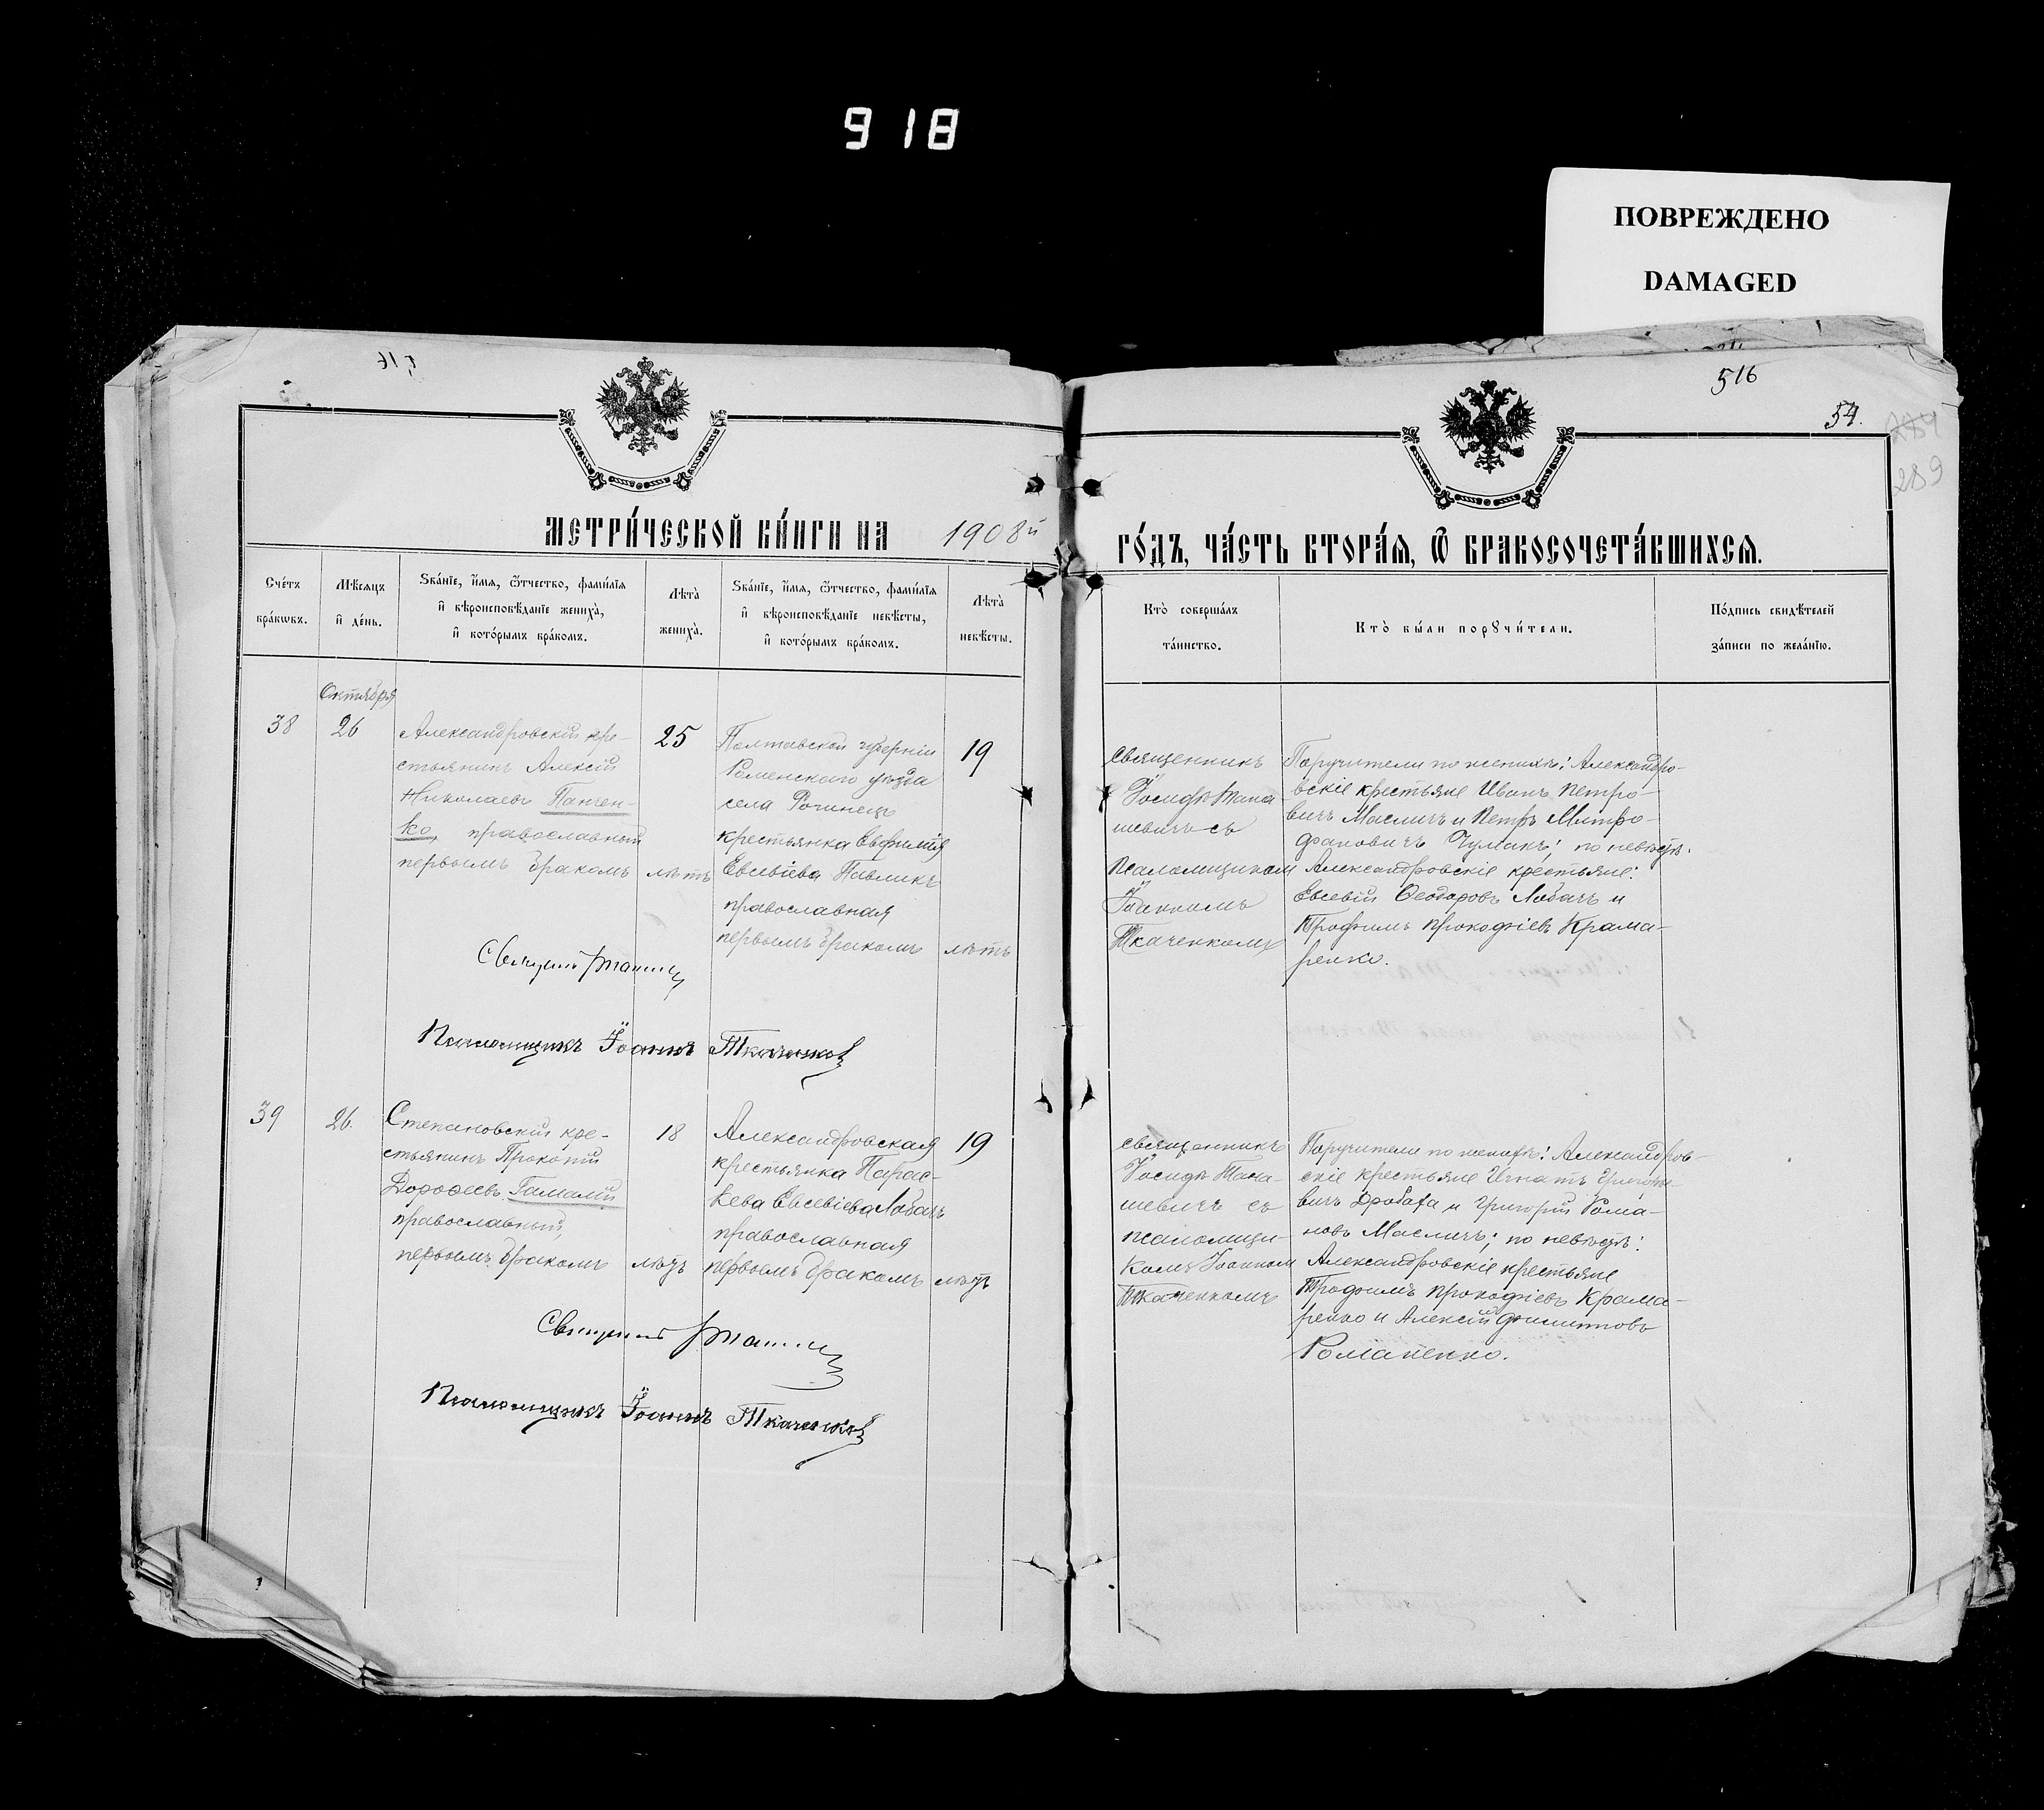 918
ПОВРЕЖДЕНО
DAMAGED
516
54.
289
МЕТРИ́ЧЕСКОЙ КНИ́ГИ НА 1908й
ГО́ДЪ, ЧА́СТЬ ВТОРА́Я, Ѿ БРАКОСОЧЕТА́ВШИХСЯ.
Сче́тъ
бра́кѡвъ.
Мѣ́сяцъ
и҆ де́нь.
Зва́нїе, и҆́мя, ѻ҆́тчество, фами́лїя
и҆ вѣроисповѣ́данїе жениха̀,
и҆ кото́рымъ бра́комъ.
Лѣта̀
жениха̀.
Зва́нїе, и҆́мя, ѻ҆́тчество, фами́лїя
и҆ вѣроисповѣ́данїе невѣ́сты,
и҆ кото́рымъ бра́комъ.
Лѣта̀
невѣ́сты.
Кто̀ соверша́лъ
та́инство.
Кто̀ бы́ли порꙋчи́тели.
По́дпись свидѣ́телей
за́писи по жела́нїю.
Октября
38
26
Александровскій кре-
стьянинъ Алексій
Николаевъ Панчен-
ко, православный
первымъ бракомъ
25
лѣтъ
Полтавской губерніи
Роменскаго уѣзда
села Рогинецъ
крестьянка Евфимія
Евсевіева Павликъ
православная
первымъ бракомъ
19
лѣтъ
Священникъ
Іосифъ Мана-
шевичъ съ
псаломщикомъ
Іоанномъ
Ткаченкомъ
Поручители по женихѣ: Александро-
вскіе крестьяне Иванъ Петро-
вичъ Масличъ и Петръ Митро-
фановичъ Чумакъ; по невѣстѣ:
Александровскіе крестьяне:
Евсевій Ѳеодоровъ Лобачъ и
Трофимъ Прокофіевъ Крама-
ренко.
Псаломщикъ Іоаннъ Ткаченко
39
26.
Степановскій кре-
стьянинъ Прокопій
Дороѳеевъ Гамалій
православный,
первымъ бракомъ
18
лѣтъ
Александровская
крестьянка Парас-
кева Евсевіева Лобачъ
православная
первымъ бракомъ
19
лѣтъ
Священникъ
Іосифъ Мана-
шевичъ съ
псаломщи-
комъ Іоанномъ
Ткаченкомъ
Поручители по женихѣ: Александров-
скіе крестьяне Игнатъ Григорье-
вичъ Дробаха и Григорій Рома-
новъ Масличъ; по невѣстѣ:
Александровскіе крестьяне
Трофимъ Прокофіевъ Крама-
ренко и Алексій Филипповъ
Романенко.
Псаломщикъ Іоаннъ Ткаченко